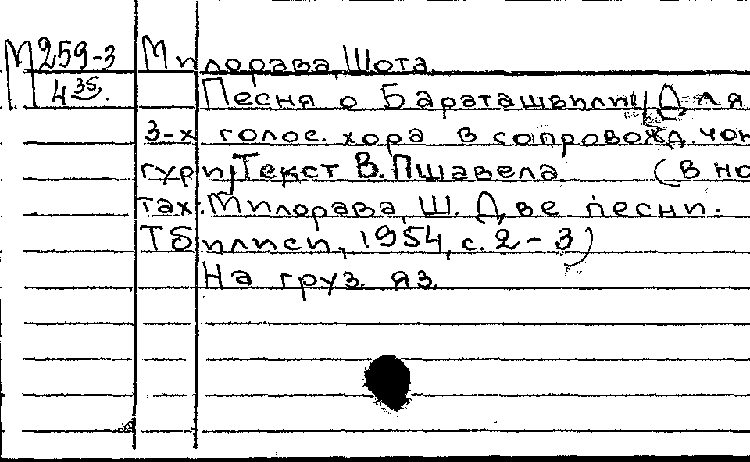 М259-3 Милорава, Шота.
4 35. Песня о Бараташвили. Для
3-х голос. хора в сопровожд. чон
гури. Текст В. Пшавела. (В но
тах: Милорава, Ш. Две песни.
Тбилиси, 1954, с. 2-3)
На груз. яз.